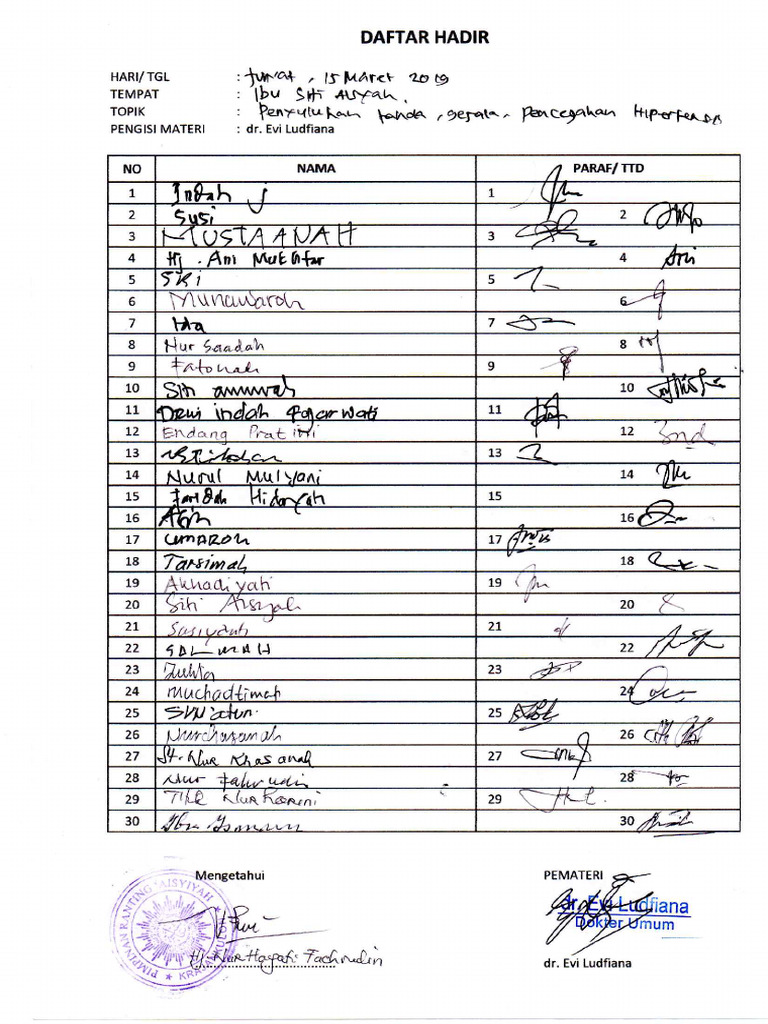 DAFTAR HADIR
HARI/ TGL : Jum'at, 15 Maret 2019
TEMPAT : Ibu Siti Aisyah.
TOPIK : Penyuluhan tanda, gejala, pencegahan Hipertensi
PENGISI MATERI : dr. Evi Ludfiana
NO NAMA PARAF/ TTD
1 Indah j 1
2 Susi 2
3 MUSTAANAH 3
4 Hj. Ani Mukhtar 4 Ani
5 SRI 5
6 Munawaroh 6
7 Ida 7
8 Nur Saadah 8
9 Fatonah 9
10 Siti 10
11 Dewi indah Fajarwati 11
12 Endang Pratiwi 12 End
13 13
14 Nurul Mulyani 14
15 Faridah Hidayah 15
16 16
17 UMAROH 17
18 Tarsimah 18
19 Akhadiyati 19
20 Siti Aisyah 20
21 Susiyanti 21
22 SALMAH 22
23 23
24 Muchadtimah 24
25 25
26 Nurchasanah 26
27 St. Nur Khasanah 27
28 Nur Fahrudin 28
29 Titik Nur Kaeni 29
30 Ibu 30
Mengetahui PEMATERI
PIMPINAN RANTING 'AISYIYAH
dr. Evi Ludfiana
Dokter Umum
Hj. Nur Hayati Fachrudin
dr. Evi Ludfiana